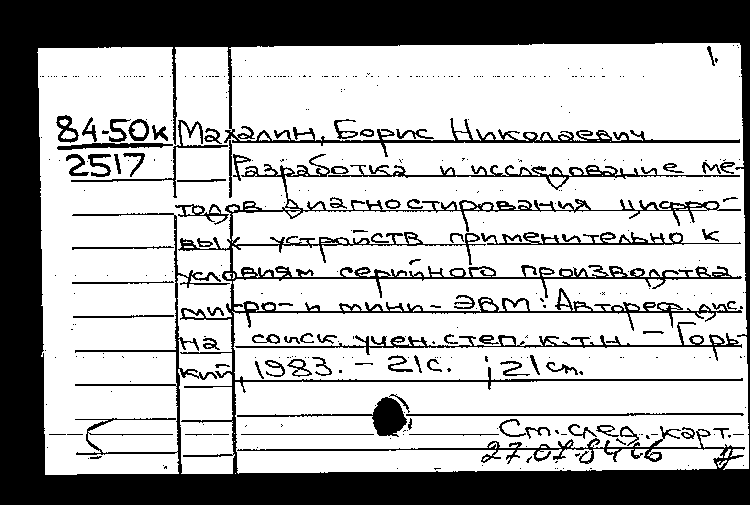 1.
84-50к Махалин, Борис Николаевич
2517 Разработка и исследование ме-
тодов диагностирования цифро-
вых устройств применительно к
условиям серийного производства
микро- и мини-ЭВМ: Автореф. дис.
на соиск. учен. степ. к.т.н. - Горь-
кий, 1983. - 21 с. ; 21 см.
См. след. карт.